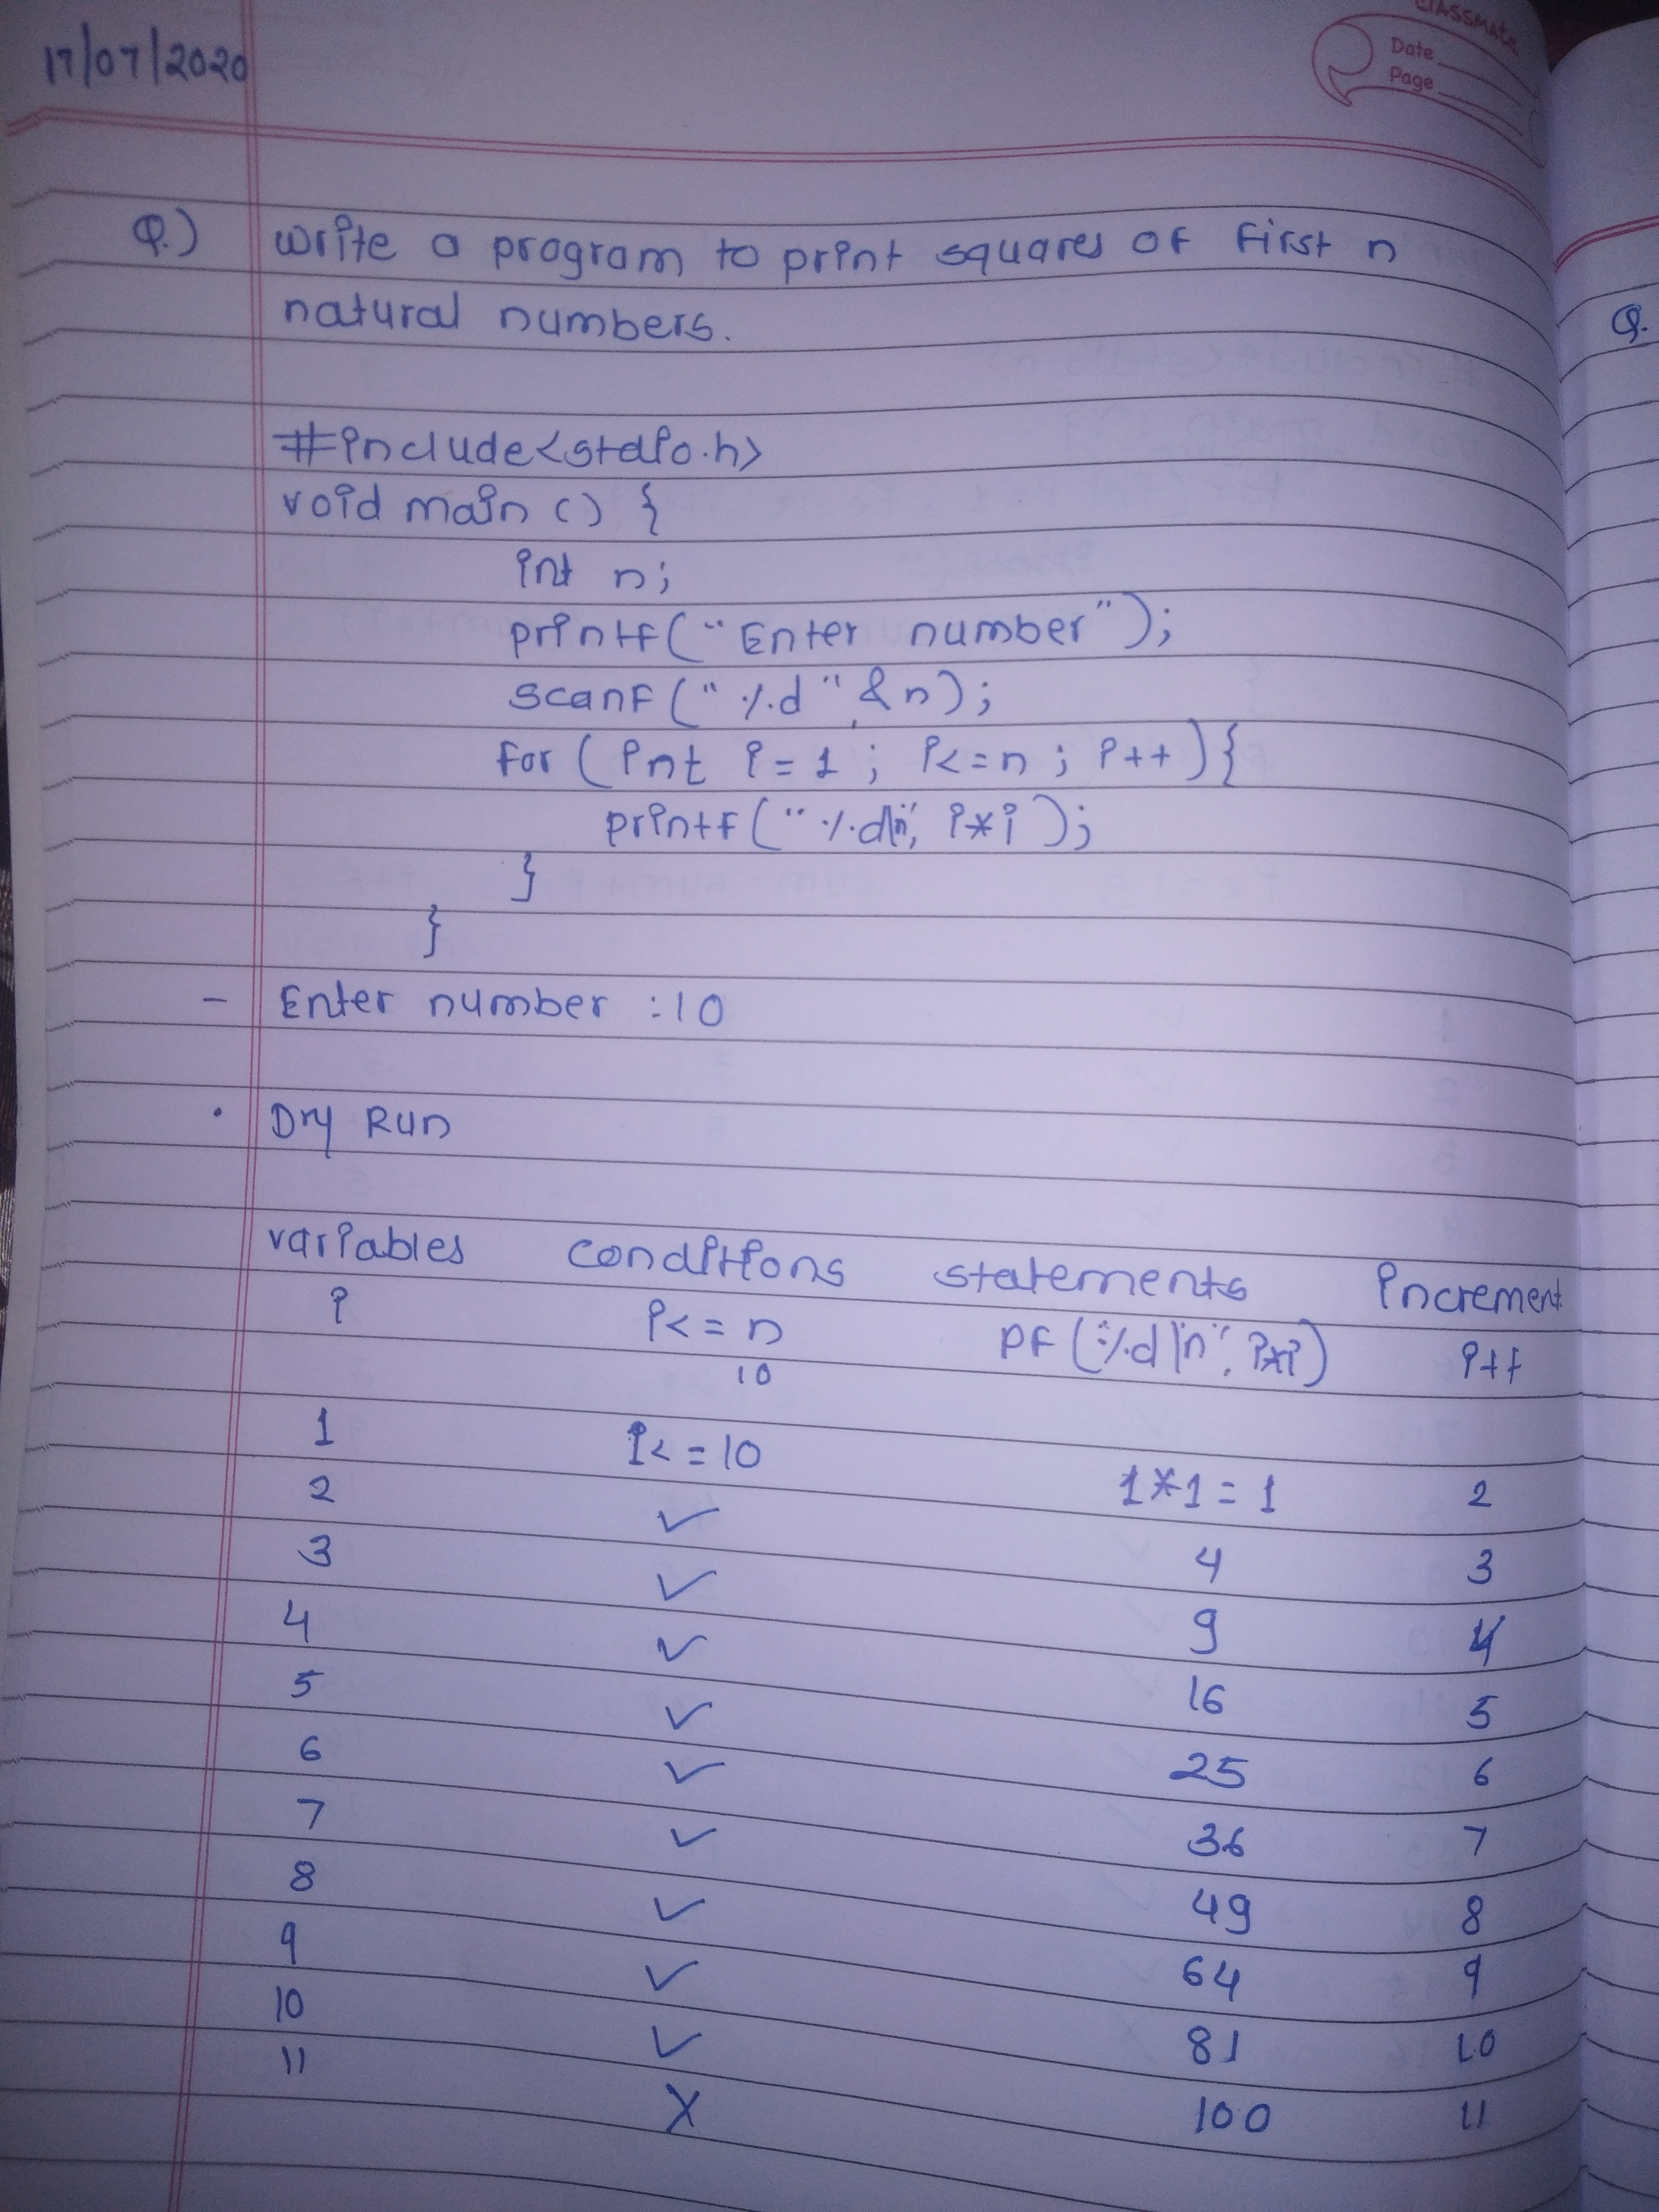 classmate
Date
Page
17/07/2020
Q.) write a program to print squares of first n
natural numbers.
#include<stdio.h>
void main () {
int n;
printf("Enter number");
scanf("%d",&n);
for (int i=1; i<=n; i++){
printf("%d\n", i*i);
}
}
- Enter number :10
• Dry Run
variables conditions statements increment
i i<=n PF("%d\n", i*i) i++
10
1 1<=10 1*1=1 2
2 ✓ 4 3
3 ✓ 9 4
4 ✓ 16 5
5 ✓ 25 6
6 ✓ 36 7
7 ✓ 49 8
8 ✓ 64 9
9 ✓ 81 10
10 ✓ 100 11
11 X
Q.